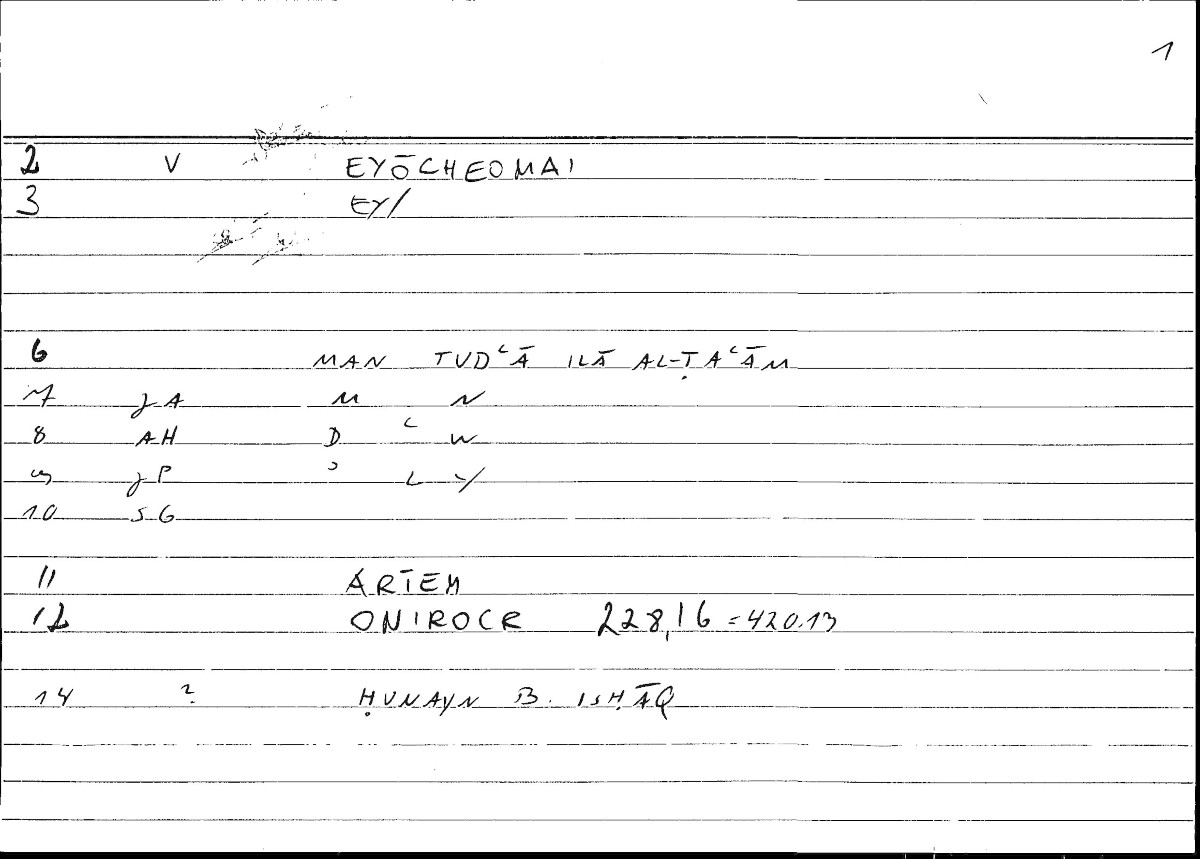 1
2 V EYŌCHEOMAI
3 EY/
6 MAN TUDʿĀ ILĀ AL-ṬAʿĀM
7 JA M N
8 AH D ʿ W
9 JP ʾ L Y
10 SG
11 ARTEM
12 ONIROCR 228,16 = 420.13
14 ? ḤUNAYN B. ISḤĀQ